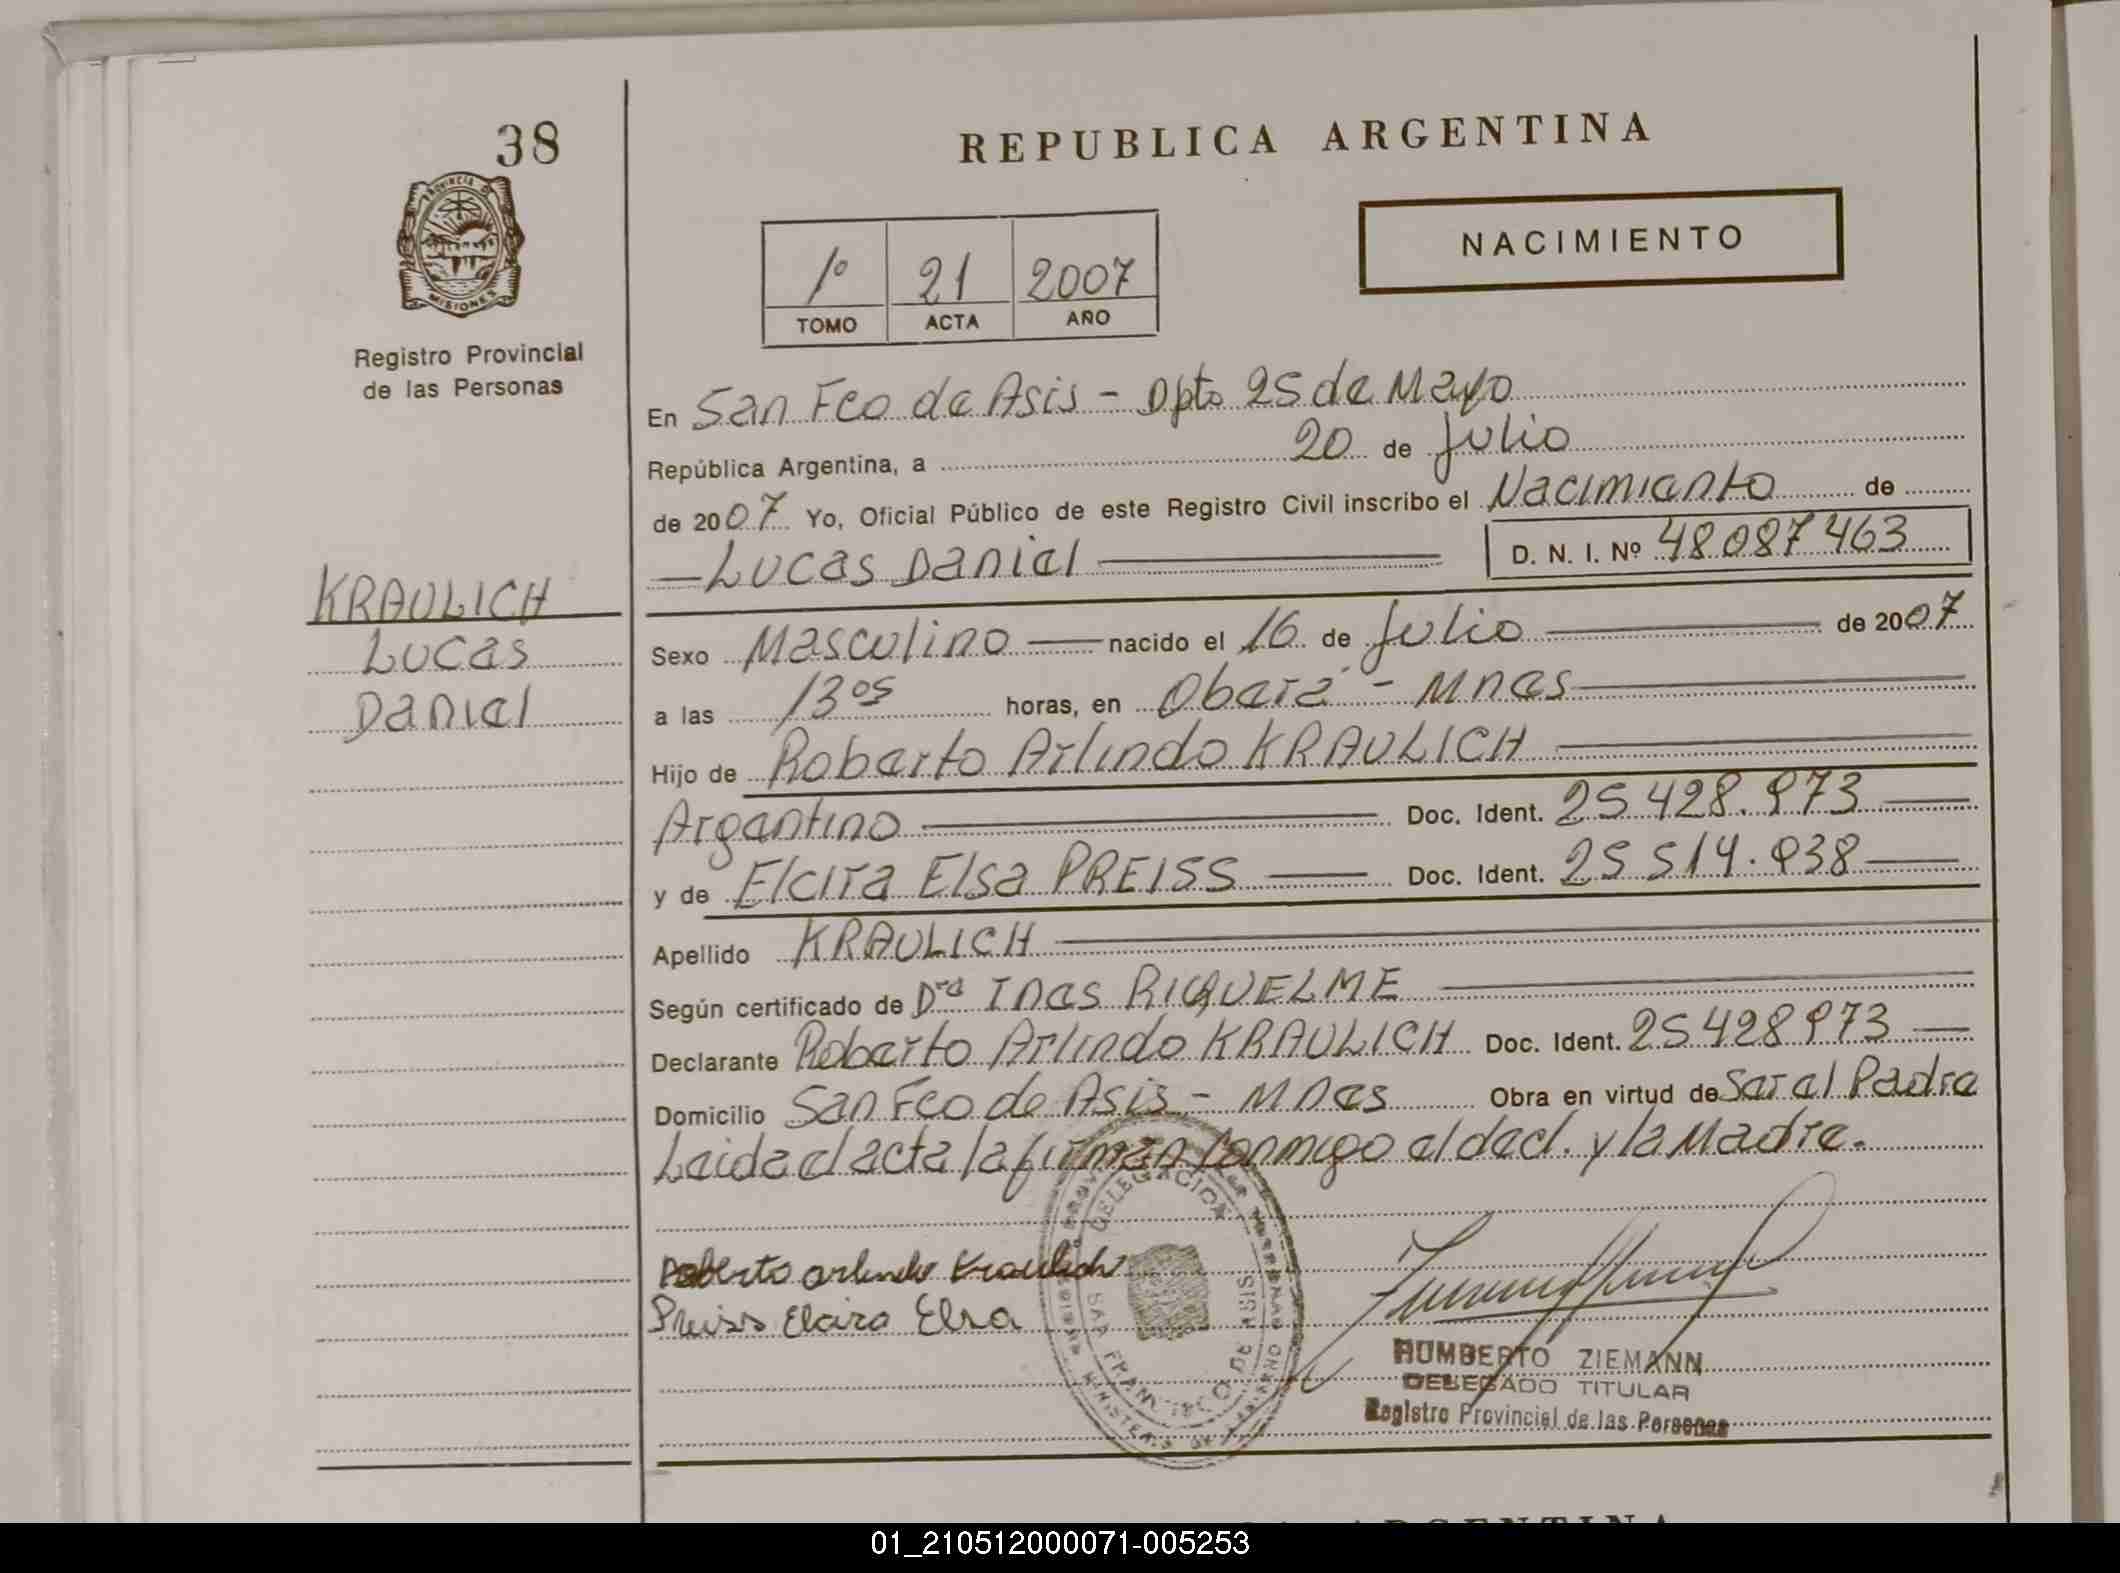 38
PROVINCIA DE
MISIONES
Registro Provincial
de las Personas
KRAULICH
Lucas
Daniel
REPUBLICA ARGENTINA
NACIMIENTO
1º 21 2007
TOMO ACTA AÑO
En San Fco de Asis - Dpto 25 de Mayo
República Argentina, a 20 de Julio
de 2007 Yo, Oficial Público de este Registro Civil inscribo el Nacimiento de
Lucas Daniel D. N. I. Nº 48087463
Sexo Masculino nacido el 16 de Julio de 2007
a las 13 05 horas, en Oberá - Mnes
Hijo de Roberto Arlindo KRAULICH
Argentino Doc. Ident. 25428.973
y de Elcira Elsa PREISS Doc. Ident. 25514.938
Apellido KRAULICH
Según certificado de Dra Ines RIQUELME
Declarante Roberto Arlindo KRAULICH Doc. Ident. 25428973
Domicilio San Fco de Asis - Mnes Obra en virtud de Ser el Padre
Leida el acta la firman conmigo el decl. y la Madre.
DELEGACION
SAN FRANCISCO DE ASIS
Roberto arlindo Kraulich
Preiss Elcira Elsa
HUMBERTO ZIEMANN
DELEGADO TITULAR
Registro Provincial de las Personas
ARGENTINA
01_210512000071-005253